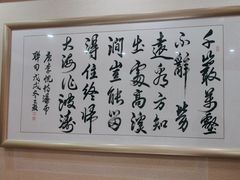 千巖萬壑
不辭勞
遠看方知
出處高溪
澗豈能留
得住終歸
大海作波濤
唐李忱瀑布
聯句戊戌冬